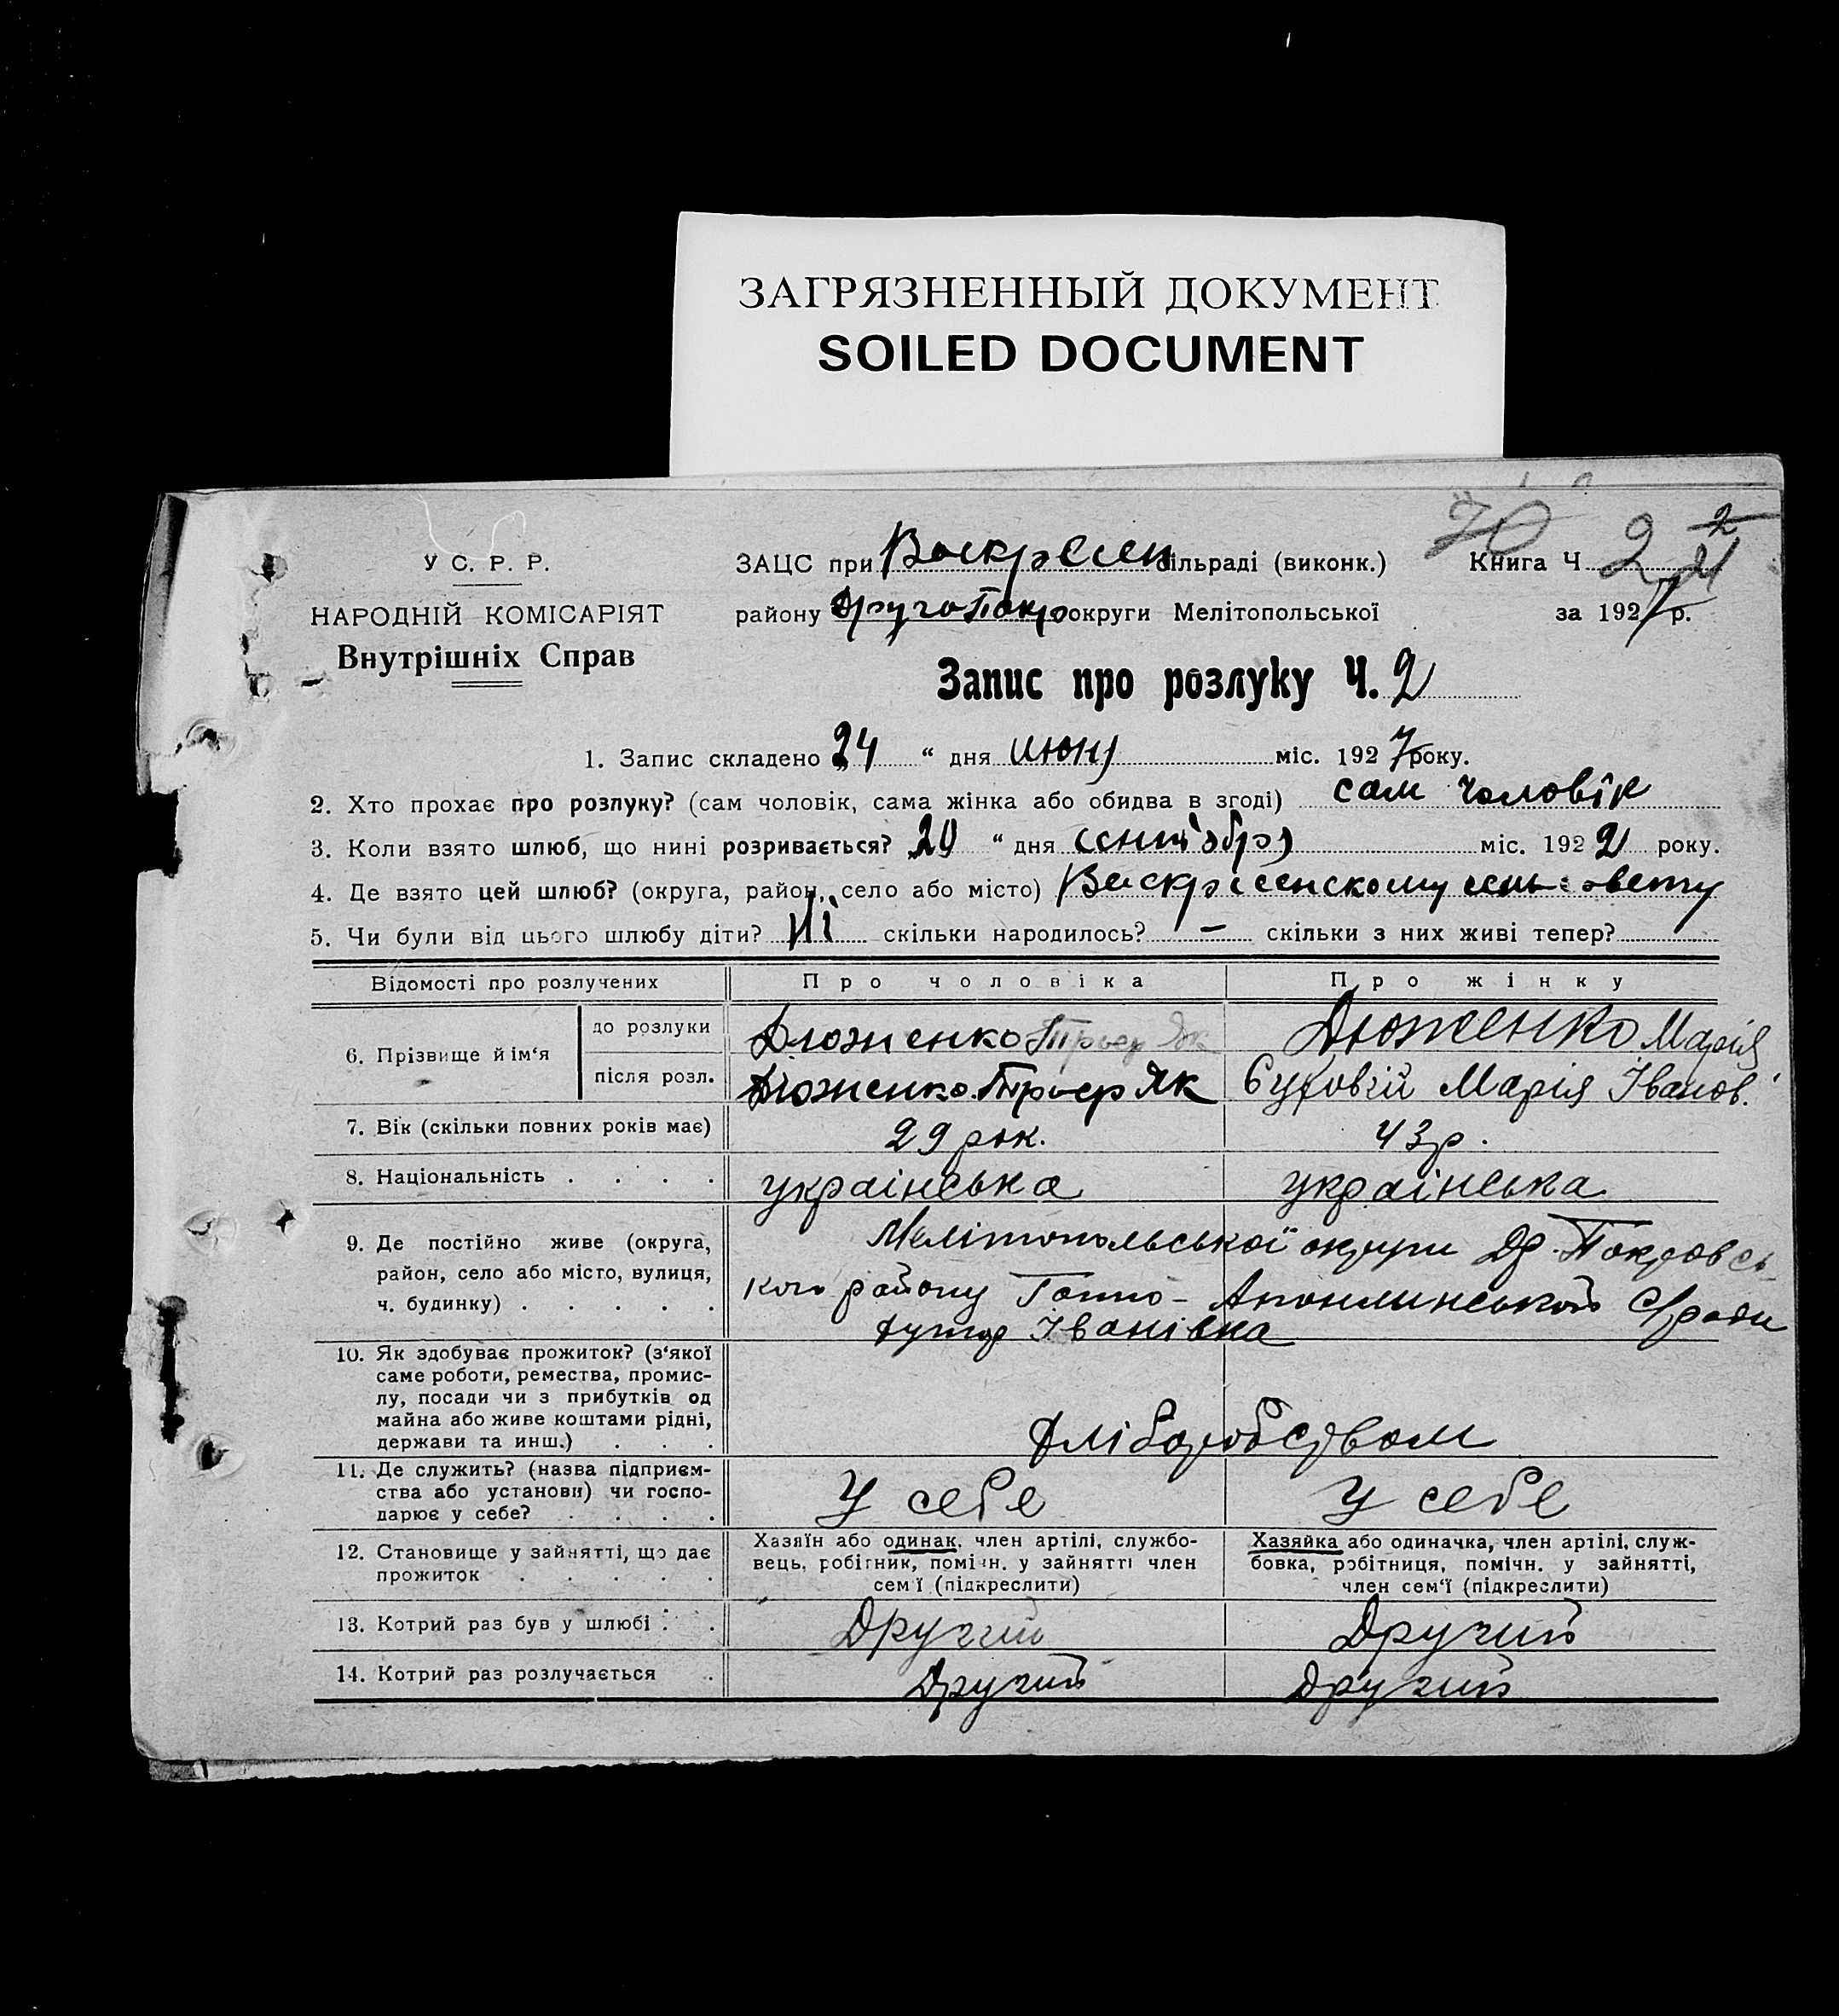 ЗАГРЯЗНЕННЫЙ ДОКУМЕНТ
SOILED DOCUMENT
70 2 2 21
У С. Р. Р.
НАРОДНІЙ КОМІСАРІЯТ
Внутрішніх Справ
ЗАЦС при Воскресен сільраді (виконк.) Книга Ч
району ДругоПокр округи Мелітопольської за 1927 р.
Запис про розлуку Ч. 2
1. Запис складено 24 “ дня июня міс. 1927 року.
2. Хто прохає про розлуку? (сам чоловік, сама жінка або обидва в згоді) сам чоловік
3. Коли взято шлюб, що нині розривається? 20 “ дня сентября міс. 1922 року.
4. Де взято цей шлюб? (округа, район, село або місто) Воскресенскому
5. Чи були від цього шлюбу діти? Ні скільки народилось? — скільки з них живі тепер?
Відомості про розлучених Про чоловіка Про жінку
6. Прізвище й ім‘я
до розлуки Дюженко Як Дюженко Марія
після розл. Дюженко Як Марія Іванов.
7. Вік (скільки повних років має) 29 рок. 43 р.
8. Національність . . . . українська українська
9. Де постійно живе (округа, район, село або місто, вулиця, ч. будинку) . . . . .
Мелітопольської округи Др. Покровсь
кого району с/ради
хутор Іванівка
10. Як здобуває прожиток? (з‘якої
саме роботи, ремества, промис-
лу, посади чи з прибутків од
майна або живе коштами рідні,
держави та инш.) . . .
хліборобством
11. Де служить? (назва підприєм-
ства або установи) чи госпо-
дарює у себе? . . . .
У себе У себе
12. Становище у зайнятті, що дає
прожиток . . . . .
Хазяїн або одинак, член артілі, службо-
вець, робітник, помічн. у зайнятті член
сем‘ї (підкреслити)
Хазяйка або одиначка, член артілі, служ-
бовка, робітниця, помічн. у зайнятті,
член сем‘ї (підкреслити)
13. Котрий раз був у шлюбі . . Другий Другий
14. Котрий раз розлучається . Другий Другий